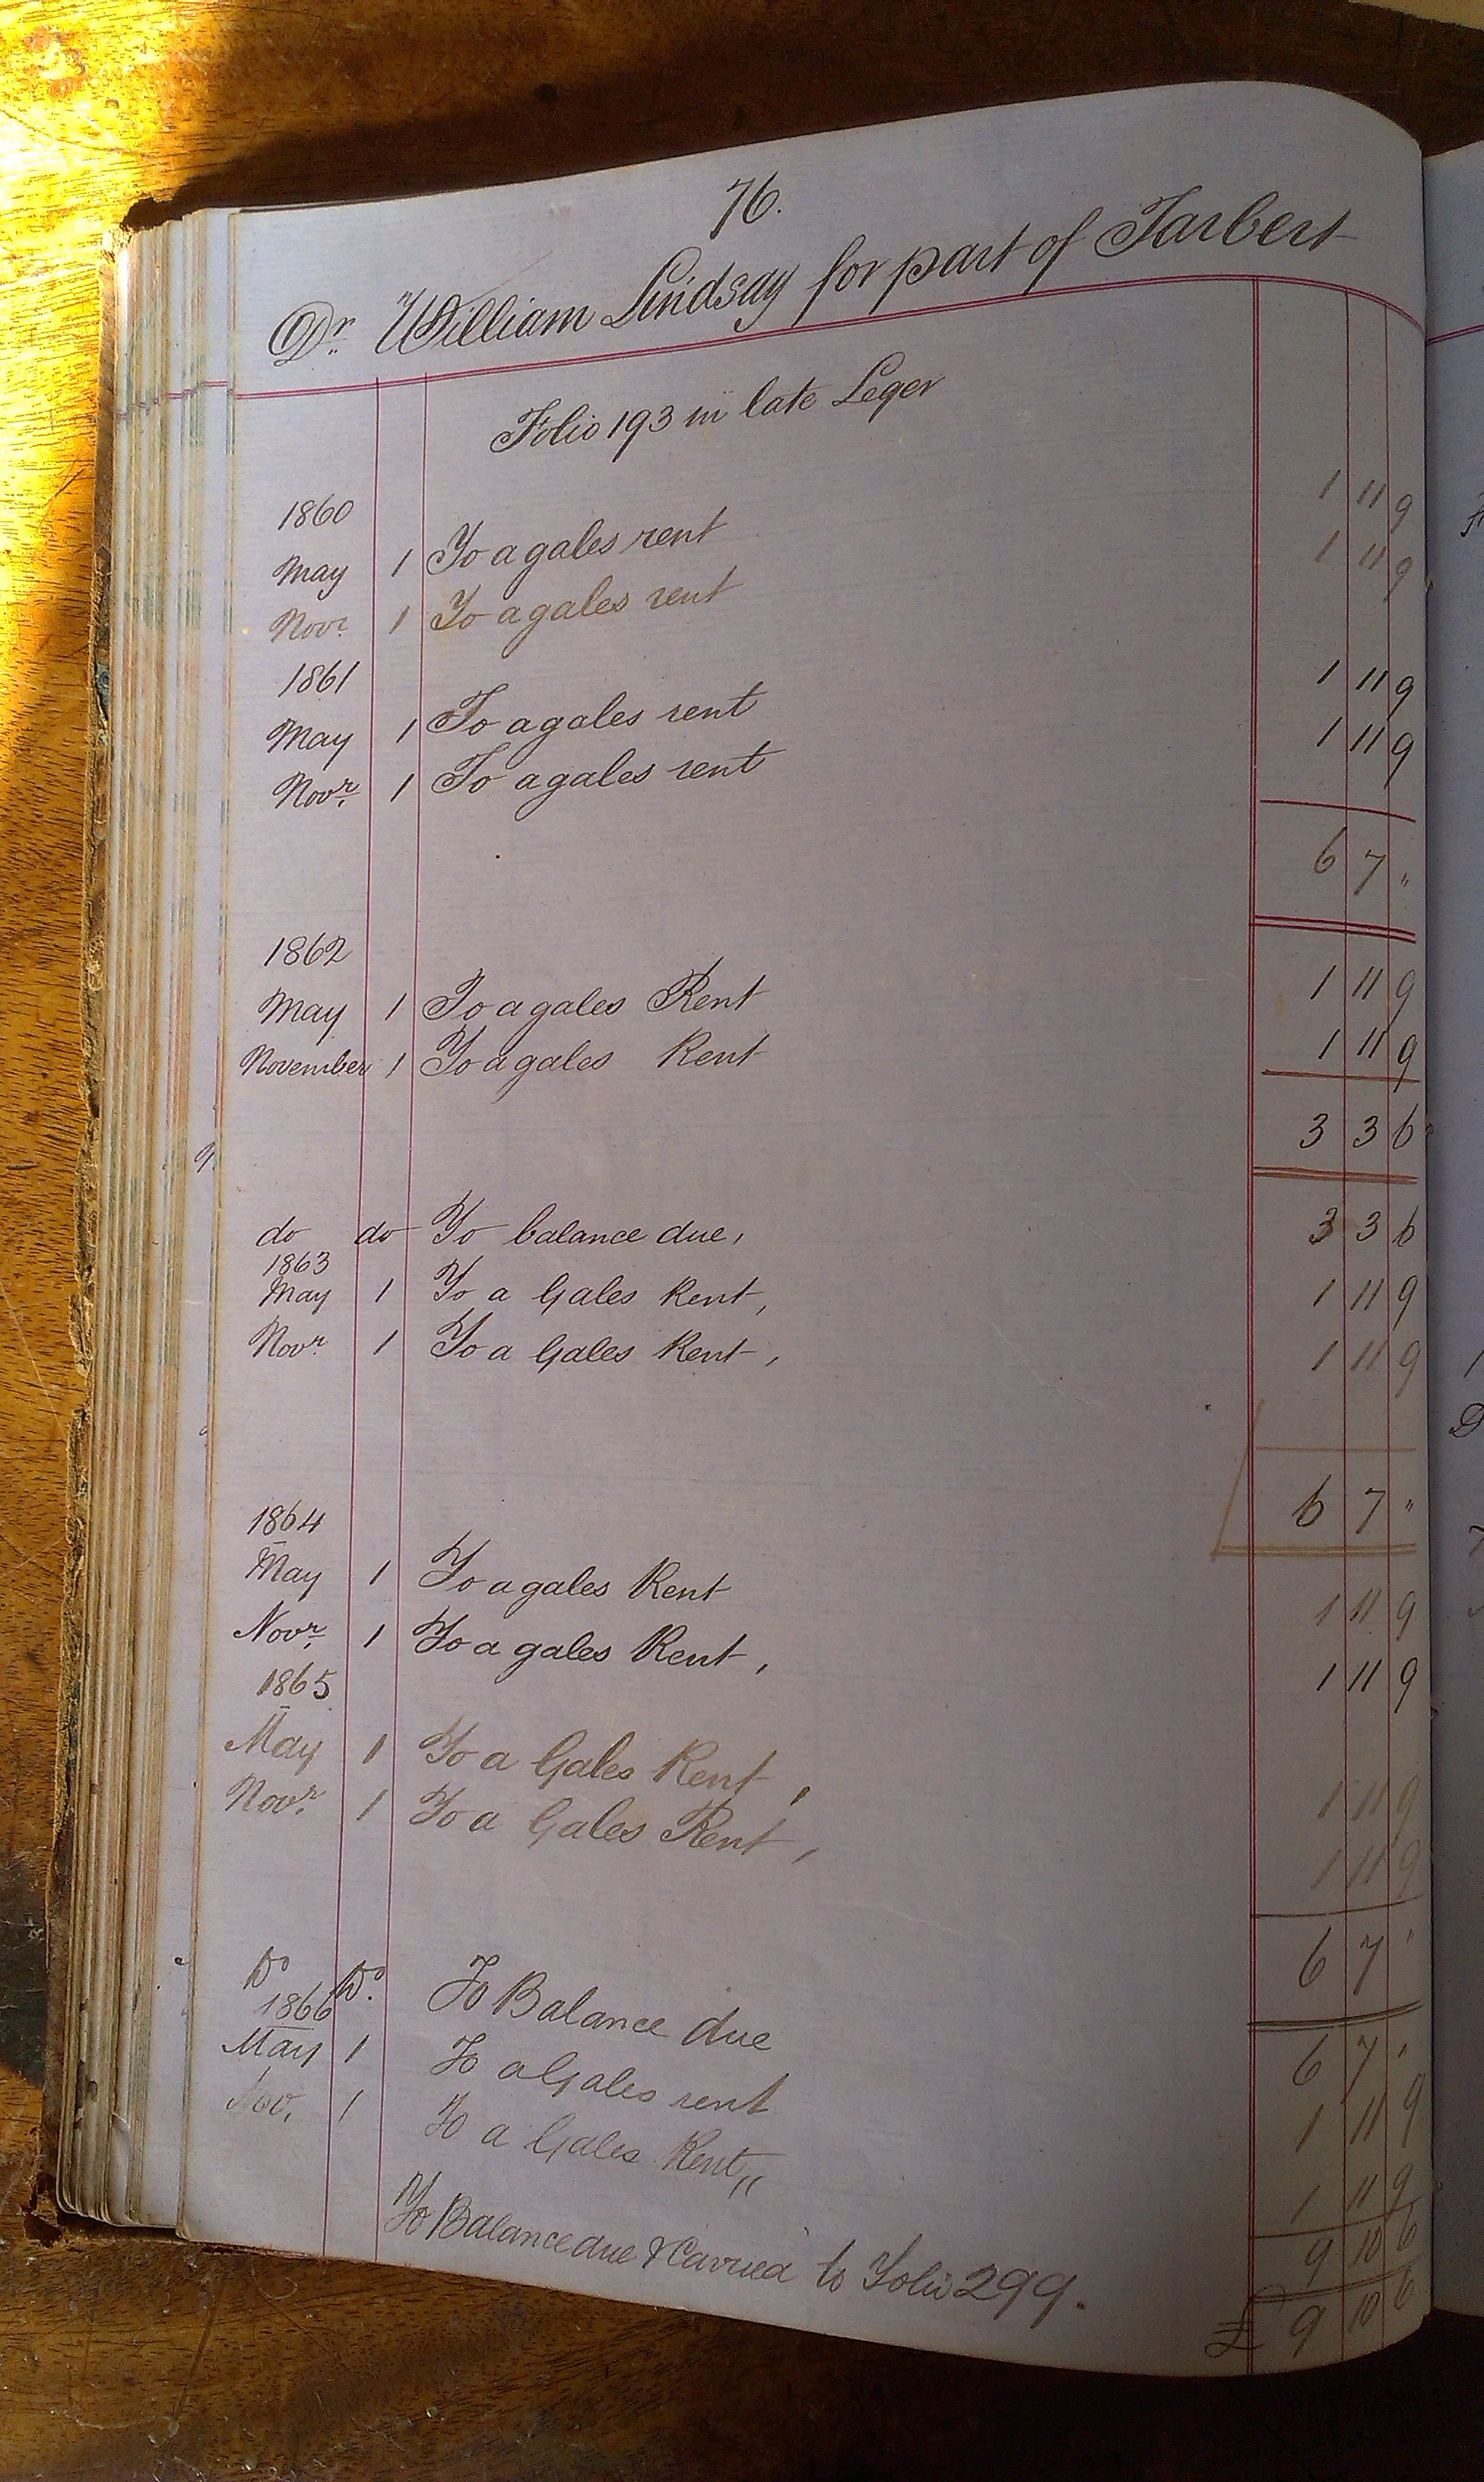 76.
Dr. William Lindsay for part of Tarbert
Folio 193 in late Leger
1860
May 1 To a gales rent 1 11 9
Novr. 1 To a gales rent 1 11 9
1861
May 1 To a gales rent 1 11 9
Novr. 1 To a gales rent 1 11 9
6 7 "
1862
May 1 To a gales Rent 1 11 9
November 1 To a gales Rent 1 11 9
3 3 6
do do To balance due, 3 3 6
1863
May 1 To a Gales Rent, 1 11 9
Novr. 1 To a Gales Rent, 1 11 9
6 7 "
1864
May 1 To a gales Rent 1 11 9
Novr. 1 To a gales Rent, 1 11 9
1865
May 1 To a Gales Rent, 1 11 9
Novr. 1 To a Gales Rent, 1 11 9
6 7 "
Do Do. To Balance due 6 7 "
1866
May 1 To a Gales rent 1 11 9
Nov. 1 To a Gales Rent,, 1 11 9
9 10 6
To Balance due & Carried to Folio 299. £ 9 10 6